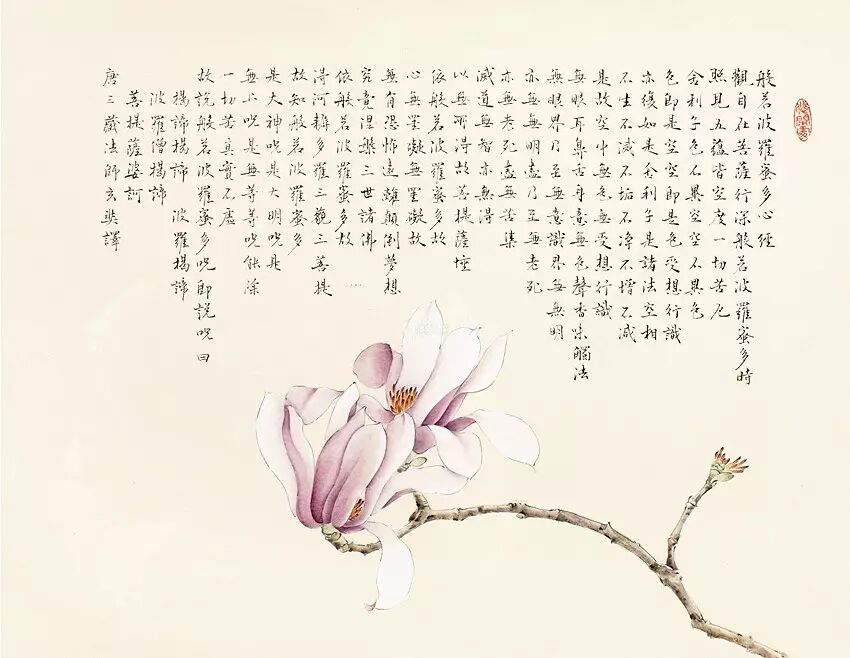 般若波羅蜜多心經
觀自在菩薩行深般若波羅蜜多時
照見五蘊皆空度一切苦厄
舍利子色不異空空不異色
色即是空空即是色受想行識
亦復如是舍利子是諸法空相
不生不滅不垢不净不增不减
是故空中無色無受想行識
無眼耳鼻舌身意無色聲香味觸法
無眼界乃至無意識界無無明
亦無無明盡乃至無老死
亦無老死盡無苦集
滅道無智亦無得
以無所得故菩提薩埵
依般若波羅蜜多故
心無罣礙無罣礙故
無有恐怖遠離顛倒夢想
究竟涅槃三世諸佛
依般若波羅蜜多故
得阿耨多羅三藐三菩提
故知般若波羅蜜多
是大神呪是大明呪是
無上呪是無等等呪能除
一切苦真實不虛
故說般若波羅蜜多呪即說呪曰
揭諦揭諦 波羅揭諦
波羅僧揭諦
菩提薩婆訶
唐三藏法師玄奘譯